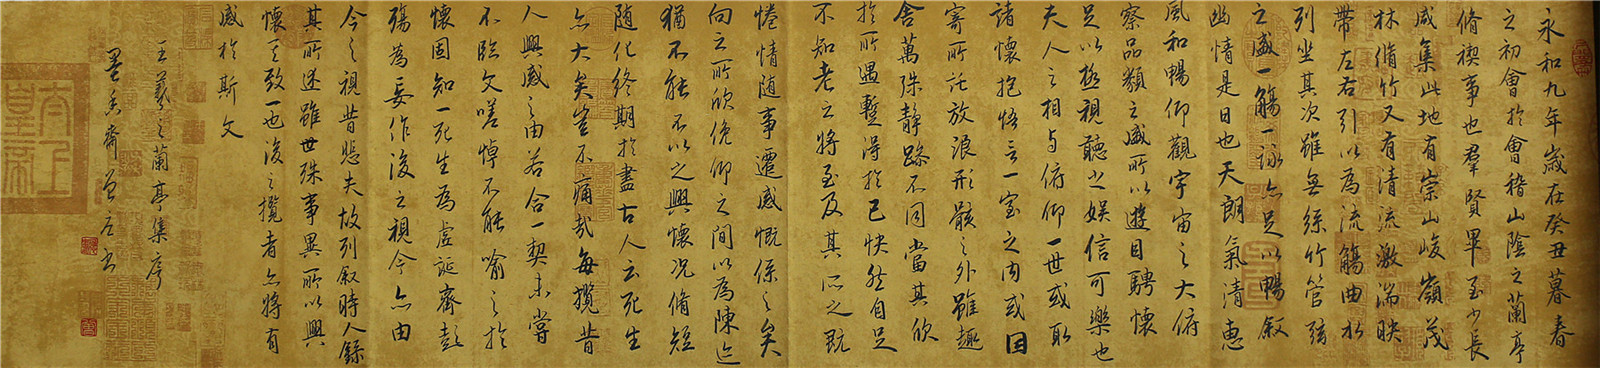 永和九年歲在癸丑暮春
之初會於會稽山陰之蘭亭
脩禊事也羣賢畢至少長
咸集此地有崇山峻嶺茂
林脩竹又有清流激湍映
帶左右引以為流觴曲水
列坐其次雖無絲竹管弦
之盛一觴一詠亦足以暢叙
幽情是日也天朗氣清惠
風和暢仰觀宇宙之大俯
察品類之盛所以遊目騁懷
足以極視聽之娛信可樂也
夫人之相与俯仰一世或取
諸懷抱悟言一室之內或因
寄所託放浪形骸之外雖趣
舍萬殊靜躁不同當其欣
於所遇暫得於己快然自足
不知老之將至及其所之既
惓情随事遷感慨係之矣
向之所欣俛仰之間以為陳迹
猶不能不以之興懷况脩短
随化終期於盡古人云死生
亦大矣豈不痛哉每攬昔
人興感之由若合一契未嘗
不臨文嗟悼不能喻之於
懷固知一死生為虛誕齊彭
殤為妄作後之視今亦由
今之視昔悲夫故列叙時人錄
其所述雖世殊事異所以興
懷其致一也後之攬者亦將有
感於斯文
王羲之蘭亭集序
墨香齋
太上皇帝